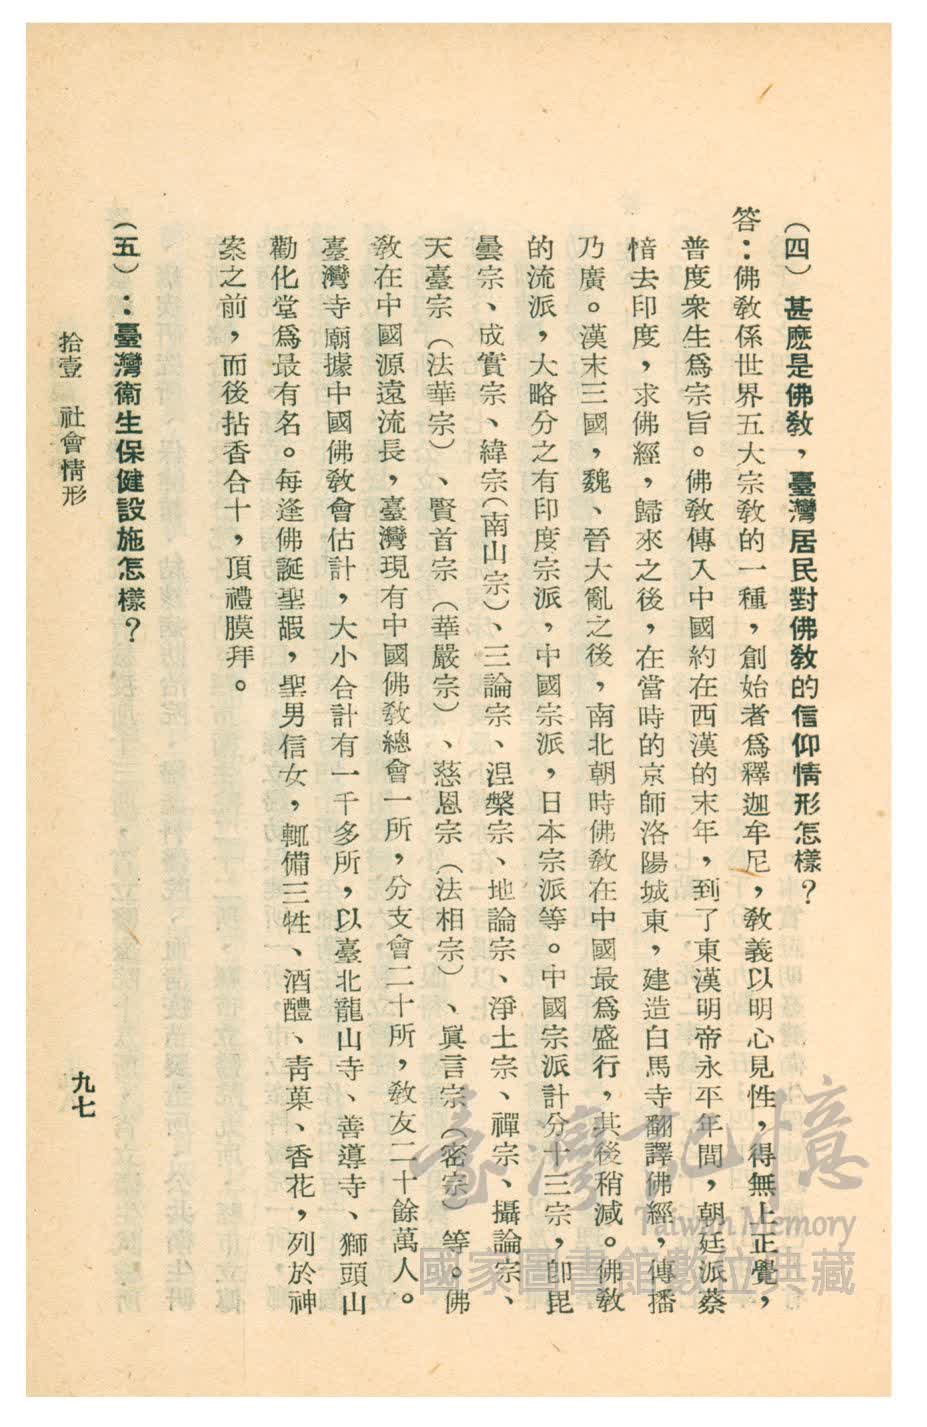 (四) 甚麽是佛教，臺灣居民對佛教的信仰情形怎樣？
答：佛教係世界五大宗教的一種，創始者爲釋迦牟尼，教義以明心見性，得無上正覺，
普度衆生爲宗旨。佛教傳入中國約在西漢的末年，到了東漢明帝永平年間，朝廷派蔡
愔去印度，求佛經，歸來之後，在當時的京師洛陽城東，建造白馬寺翻譯佛經，傳播
乃廣。漢末三國，魏、晉大亂之後，南北朝時佛教在中國最爲盛行，其後稍減。佛教
的流派，大略分之有印度宗派，中國宗派，日本宗派等。中國宗派計分十三宗，卽毘
曇宗、成實宗、緯宗(南山宗)、三論宗、涅槃宗、地論宗、淨土宗、禪宗、攝論宗、
天臺宗（法華宗）、賢首宗（華嚴宗）、慈恩宗（法相宗）、眞言宗（密宗）等。佛
教在中國源遠流長，臺灣現有中國佛教總會一所，分支會二十所，教友二十餘萬人。
臺灣寺廟據中國佛教會估計，大小合計有一千多所，以臺北龍山寺、善導寺、獅頭山
勸化堂爲最有名。每逢佛誕聖嘏，聖男信女，輒備三牲、酒醴、靑菓、香花，列於神
案之前，而後拈香合十，頂禮膜拜。
(五)：臺灣衞生保健設施怎樣？
拾壹 社會情形
九七
臺灣記憶
Taiwan Memory
國家圖書館數位典藏